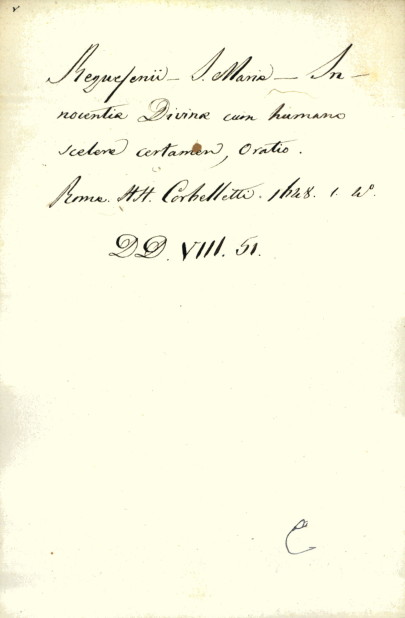 Requesenii – I. Maria – In-
nocentiæ Divinæ cum humano
scelere certamen, Oratio.
Romæ. HH. Corbelletti. 1648. 1. 4°.
DD. VIII. 51.